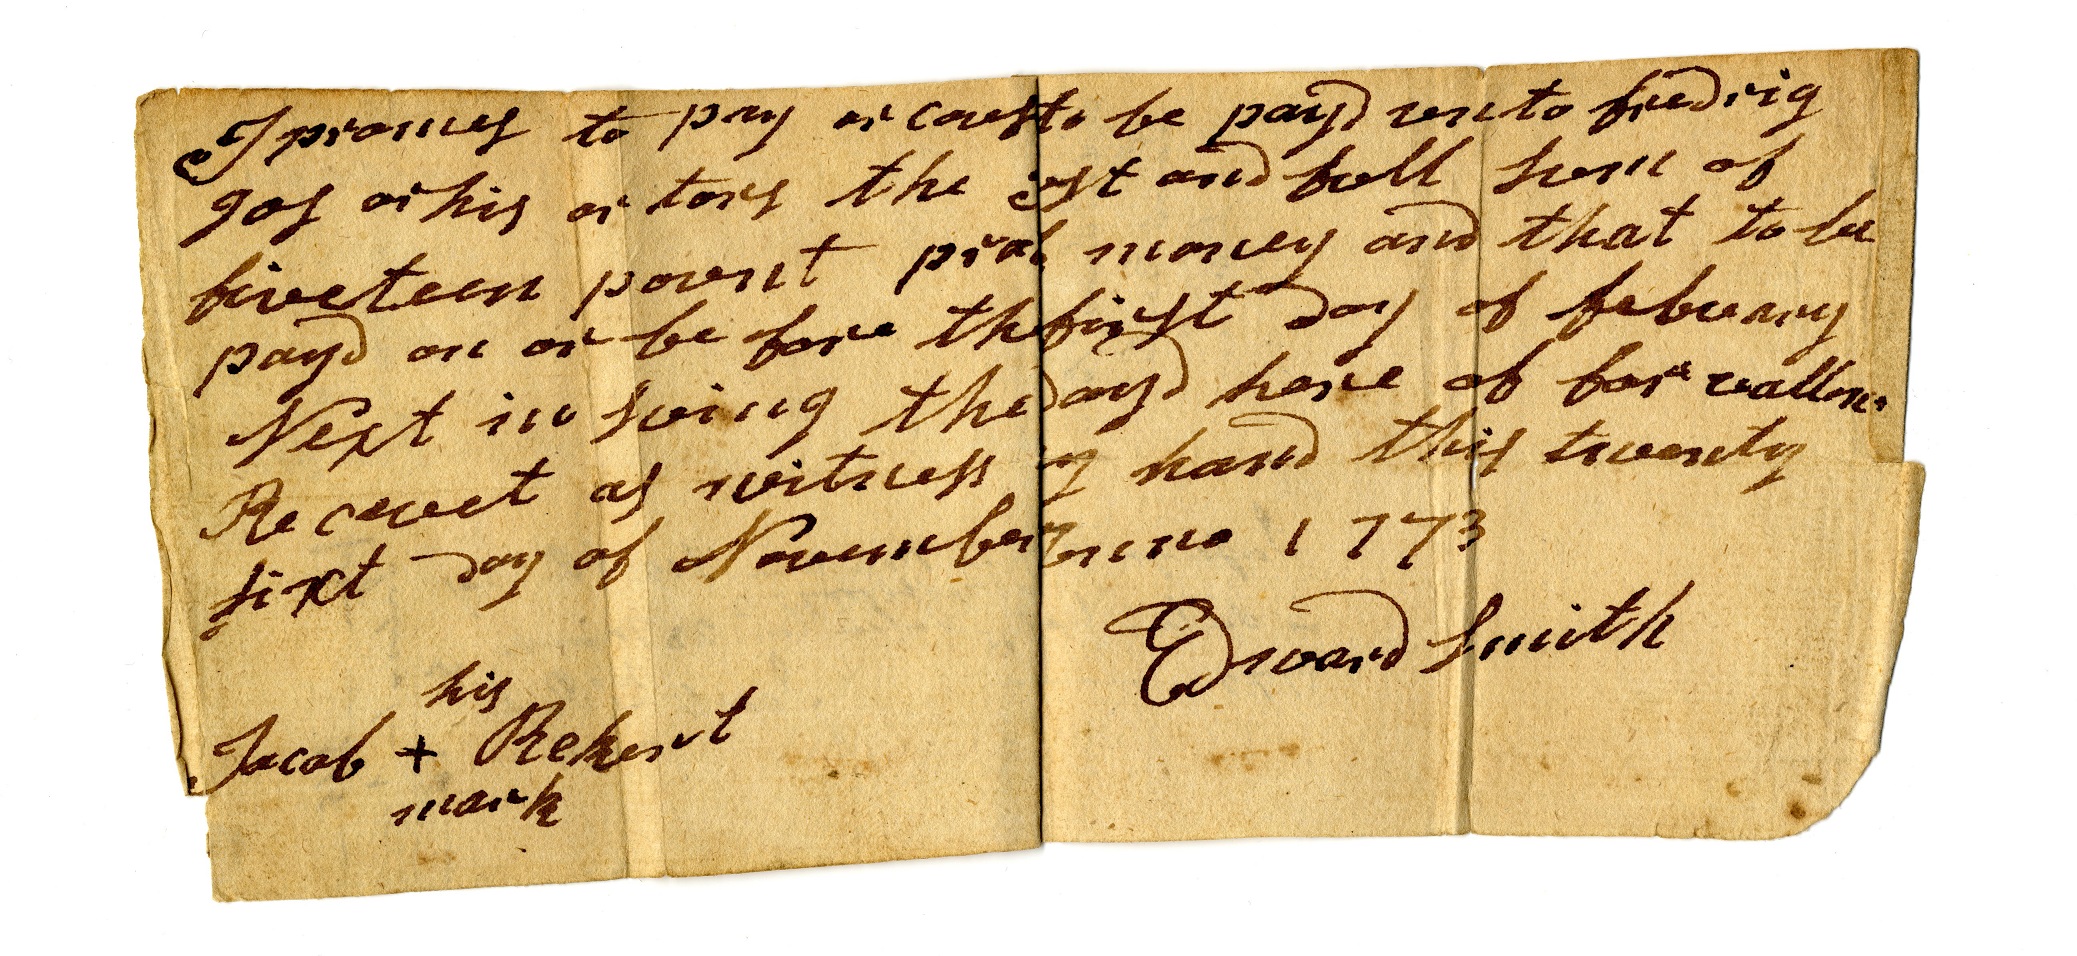 I promes to pay or caus to be payd unto friedrig
Jos or his or tors the Just and full sum of
fiveteen pount prok money and that to be
payd on or be fore the first day of february
Next in suing the dayd here of for vallu
Receuet as witness my hand this twenty
sixt day of November anno 1773
Edward Smith
his
Jacob + Rekert
mark